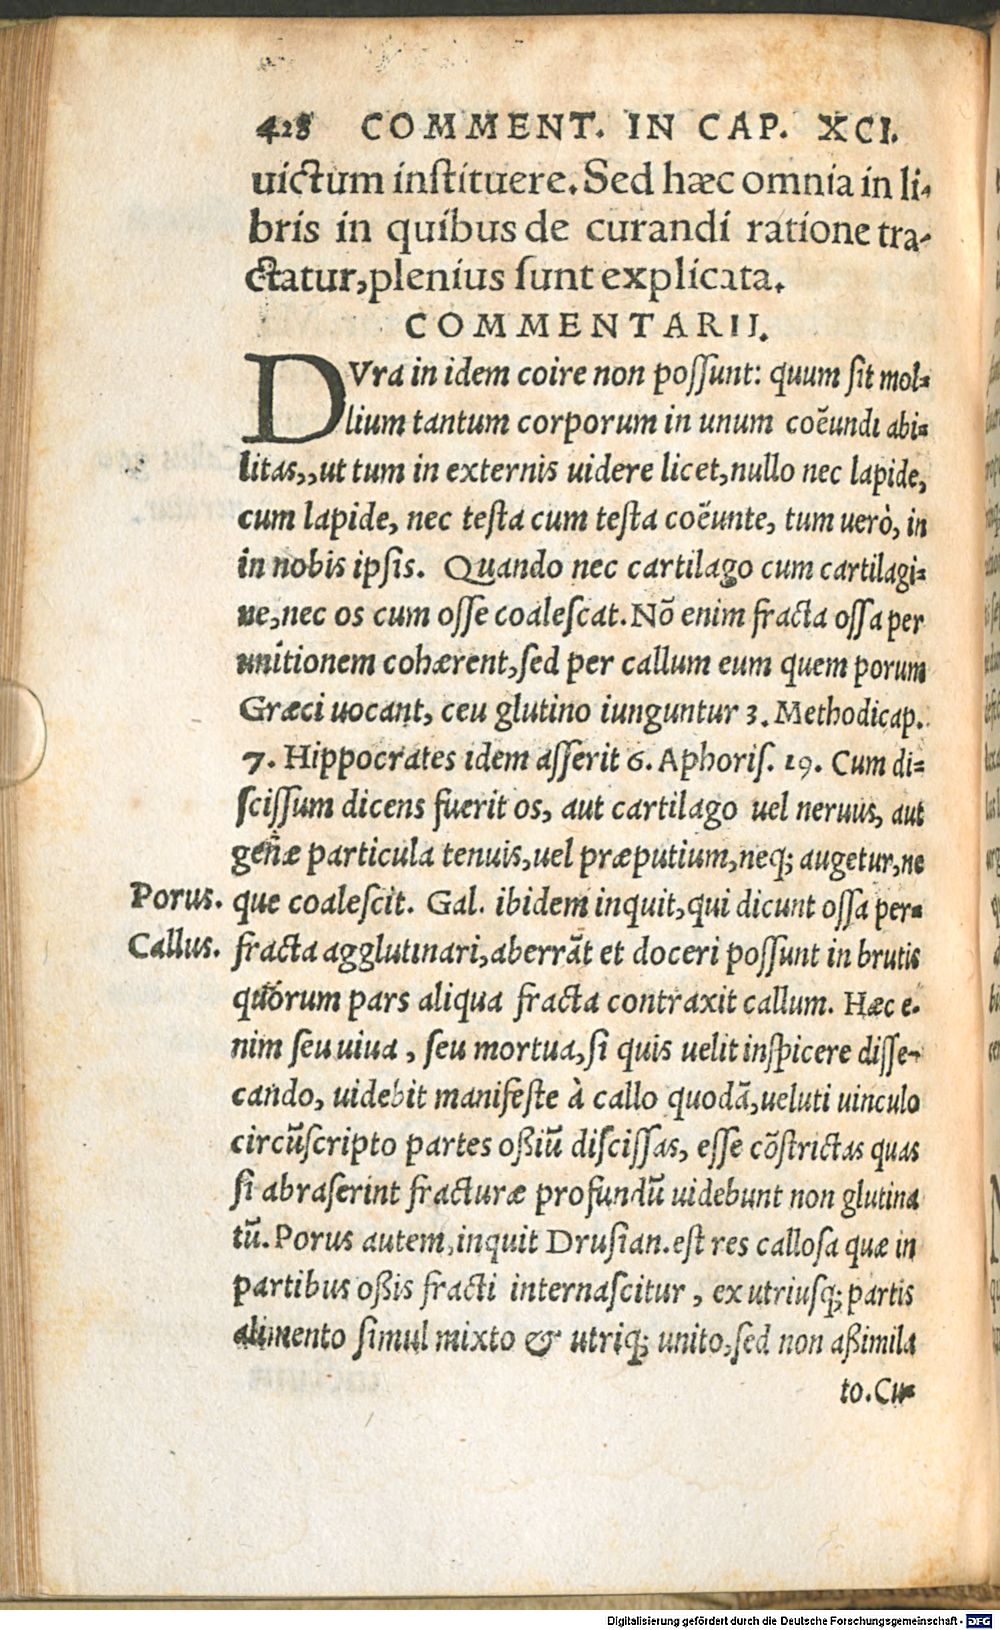 428 COMMENT. IN CAP. XCI.
uictum instituere. Sed hæc omnia in li-
bris in quibus de curandi ratione tra-
ctatur, plenius sunt explicata.
COMMENTARII.
DVra in idem coire non possunt: quum sit mol=
lium tantum corporum in unum coëundi abi=
litas,, ut tum in externis uidere licet, nullo nec lapide,
cum lapide, nec testa cum testa coëunte, tum uerò, in
in nobis ipsis. Quando nec cartilago cum cartilagi=
ne, nec os cum osse coalescat. Nõ enim fracta ossa per
unitionem cohærent, sed per callum eum quem porum
Græci uocant, ceu glutino iunguntur 3. Methodi cap.
7. Hippocrates idem asserit 6. Aphoris. 19. Cum di=
scissum dicens fuerit os, aut cartilago uel neruus, aut
geñæ particula tenuis, uel præputium, neq; augetur, ne
Porus. que coalescit. Gal. ibidem inquit, qui dicunt ossa per=
Callus. fracta agglutinari, aberrãt et doceri possunt in brutis
quorum pars aliqua fracta contraxit callum. Hæc e-
nim seu uiua, seu mortua, si quis uelit inspicere disse-
cando, uidebit manifeste à callo quodã, ueluti uinculo
circũscripto partes oßiũ discissas, esse cõstrictas quas
si abraserint fracturæ profundũ uidebunt non glutina
tũ. Porus autem, inquit Drusian. est res callosa quæ in
partibus oßis fracti internascitur, ex utriusq; partis
alimento simul mixto & utriq; unito, sed non aßimila
to. Cu=
Digitalisierung gefördert durch die Deutsche Forschungsgemeinschaft - DFG